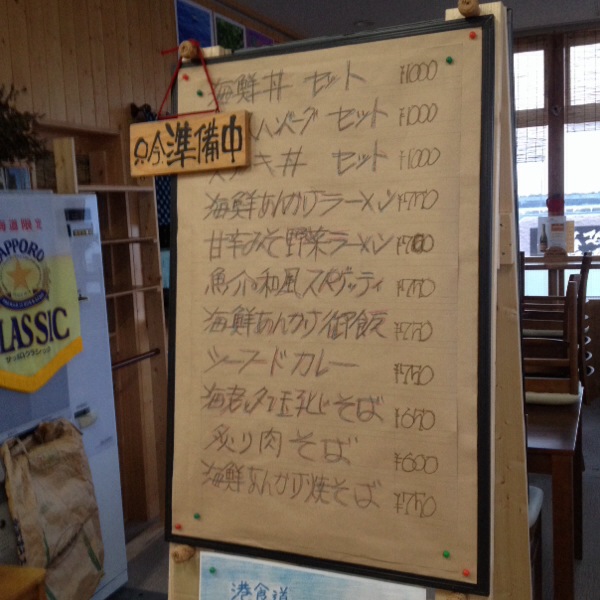 海鮮丼 セット ¥1000
ハンバーグ セット ¥1000
ステーキ丼 セット ¥1000
海鮮あんかけラーメン ¥750
甘辛みそ野菜ラーメン ¥700
魚介の和風スパゲッティ ¥750
海鮮あんかけ御飯 ¥750
シーフードカレー ¥750
そば ¥650
炙り肉そば ¥600
海鮮あんかけ焼そば ¥750
只今準備中
海道限定
SAPPORO
CLASSIC
港食道